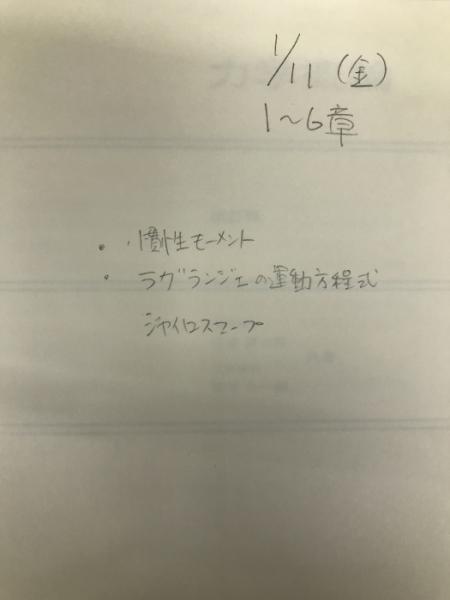 1/11 (金)
1〜6章
・慣性モーメント
・ラグランジェの運動方程式
ジャイロスコープ